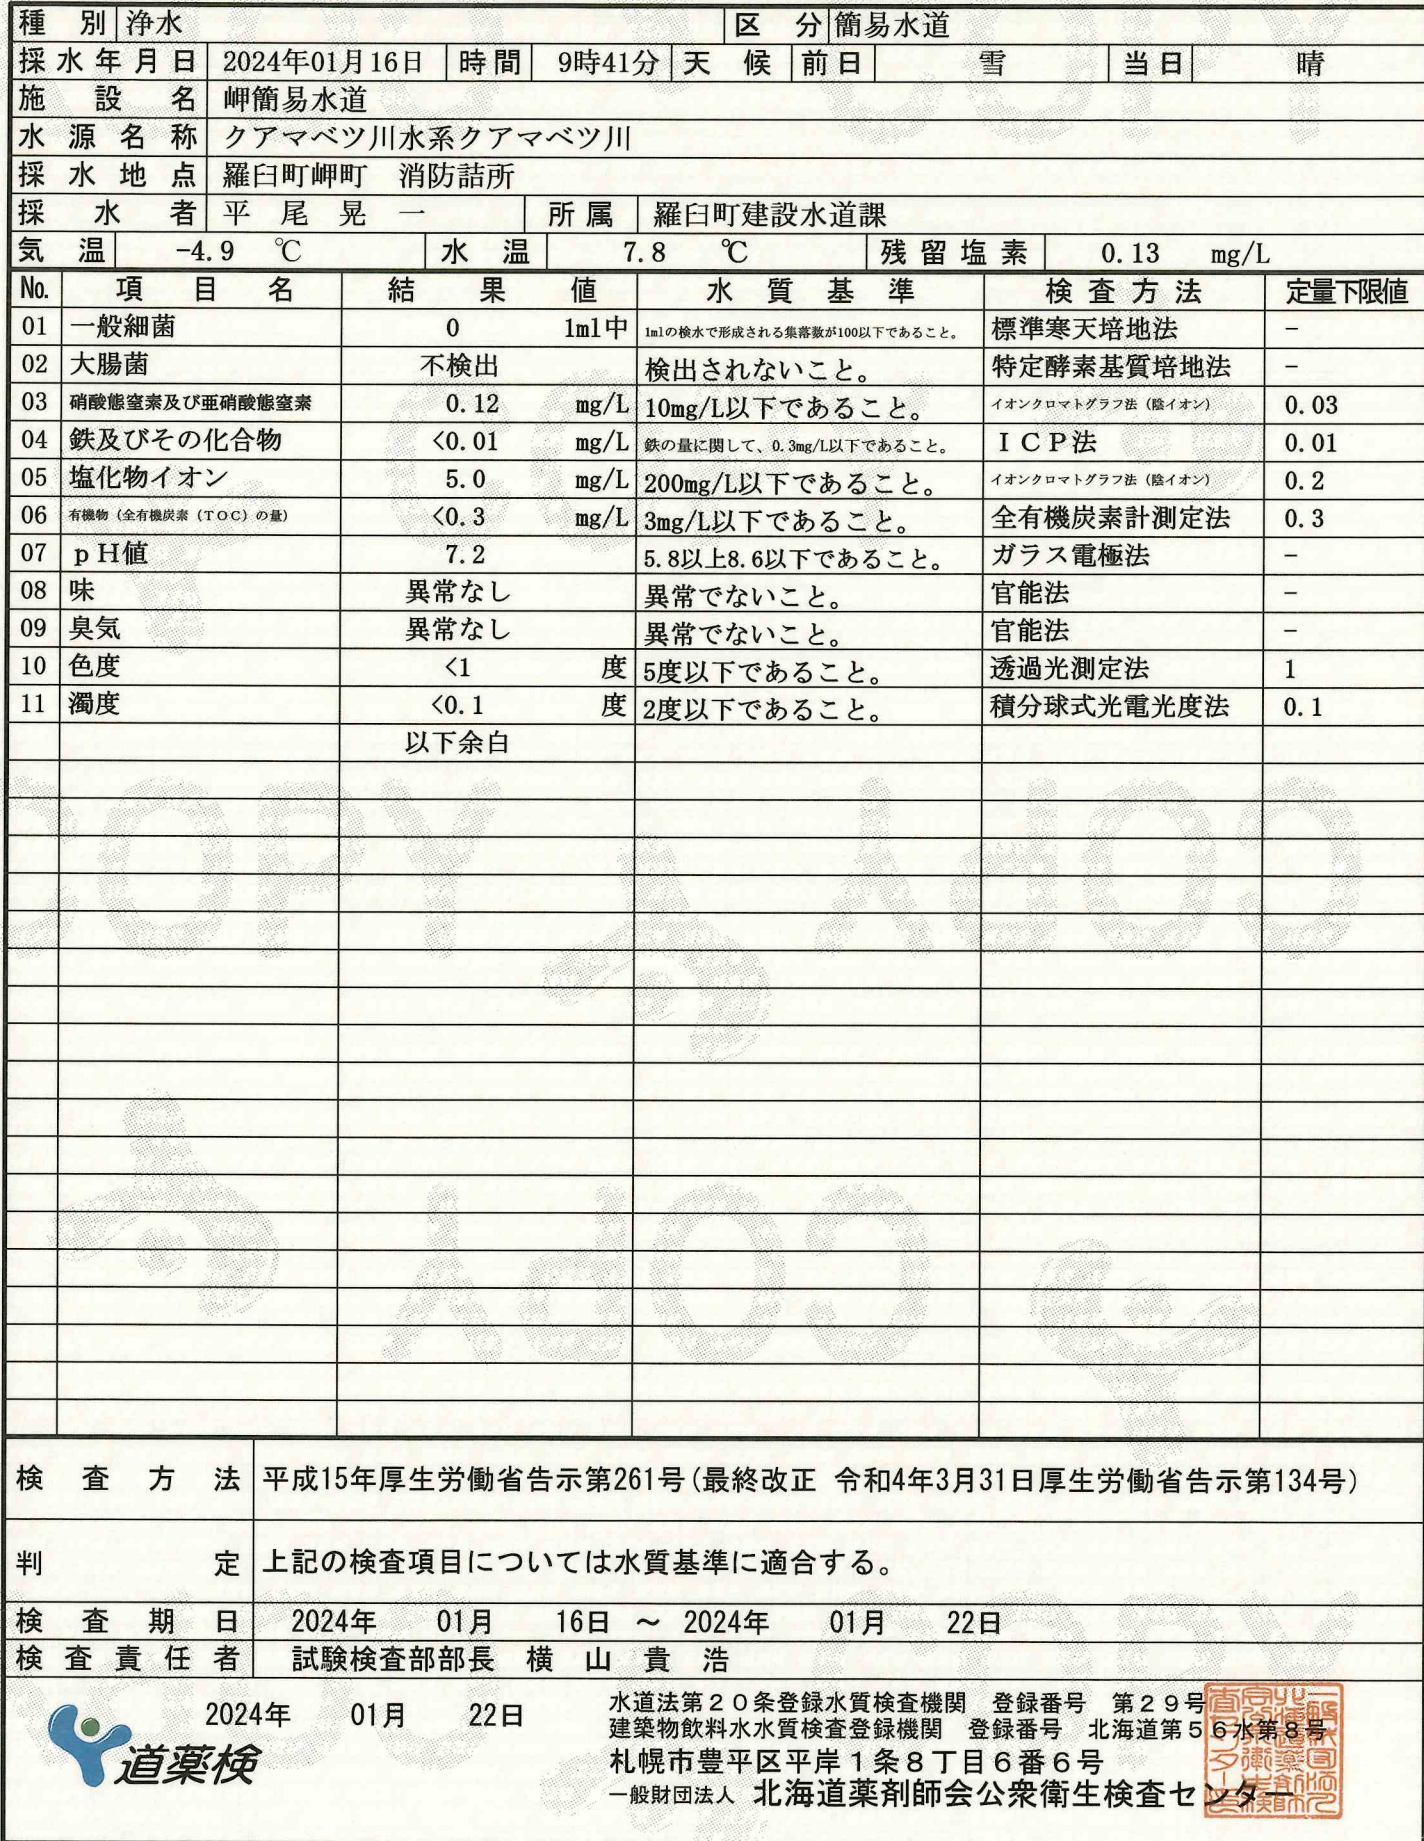 種 別 浄水 区 分 簡易水道
採水年月日 2024年01月16日 時間 9時41分 天 候 前日 雪 当日 晴
施 設 名 岬簡易水道
水 源 名 称 クアマベツ川水系クアマベツ川
採 水 地 点 羅臼町岬町 消防詰所
採 水 者 平 尾 晃 一 所属 羅臼町建設水道課
気 温 -4.9 ℃ 水 温 7.8 ℃ 残留塩素 0.13 mg/L
No. 項 目 名 結 果 値 水 質 基 準 検 査 方 法 定量下限値
01 一般細菌 0 1ml中 1mlの検水で形成される集落数が100以下であること。 標準寒天培地法 －
02 大腸菌 不検出 検出されないこと。 特定酵素基質培地法 －
03 硝酸態窒素及び亜硝酸態窒素 0.12 mg/L 10mg/L以下であること。 イオンクロマトグラフ法（陰イオン） 0.03
04 鉄及びその化合物 <0.01 mg/L 鉄の量に関して、0.3mg/L以下であること。 ＩＣＰ法 0.01
05 塩化物イオン 5.0 mg/L 200mg/L以下であること。 イオンクロマトグラフ法（陰イオン） 0.2
06 有機物（全有機炭素（ＴＯＣ）の量） <0.3 mg/L 3mg/L以下であること。 全有機炭素計測定法 0.3
07 ｐＨ値 7.2 5.8以上8.6以下であること。 ガラス電極法 －
08 味 異常なし 異常でないこと。 官能法 －
09 臭気 異常なし 異常でないこと。 官能法 －
10 色度 <1 度 5度以下であること。 透過光測定法 1
11 濁度 <0.1 度 2度以下であること。 積分球式光電光度法 0.1
以下余白
検 査 方 法 平成15年厚生労働省告示第261号(最終改正 令和4年3月31日厚生労働省告示第134号)
判 定 上記の検査項目については水質基準に適合する。
検 査 期 日 2024年 01月 16日 ～ 2024年 01月 22日
検 査 責 任 者 試験検査部部長 横 山 貴 浩
2024年 01月 22日
道薬検
水道法第２０条登録水質検査機関 登録番号 第２９号
建築物飲料水水質検査登録機関 登録番号 北海道第５６水第８号
札幌市豊平区平岸１条８丁目６番６号
一般財団法人 北海道薬剤師会公衆衛生検査センター
COPY
COPY
COPY